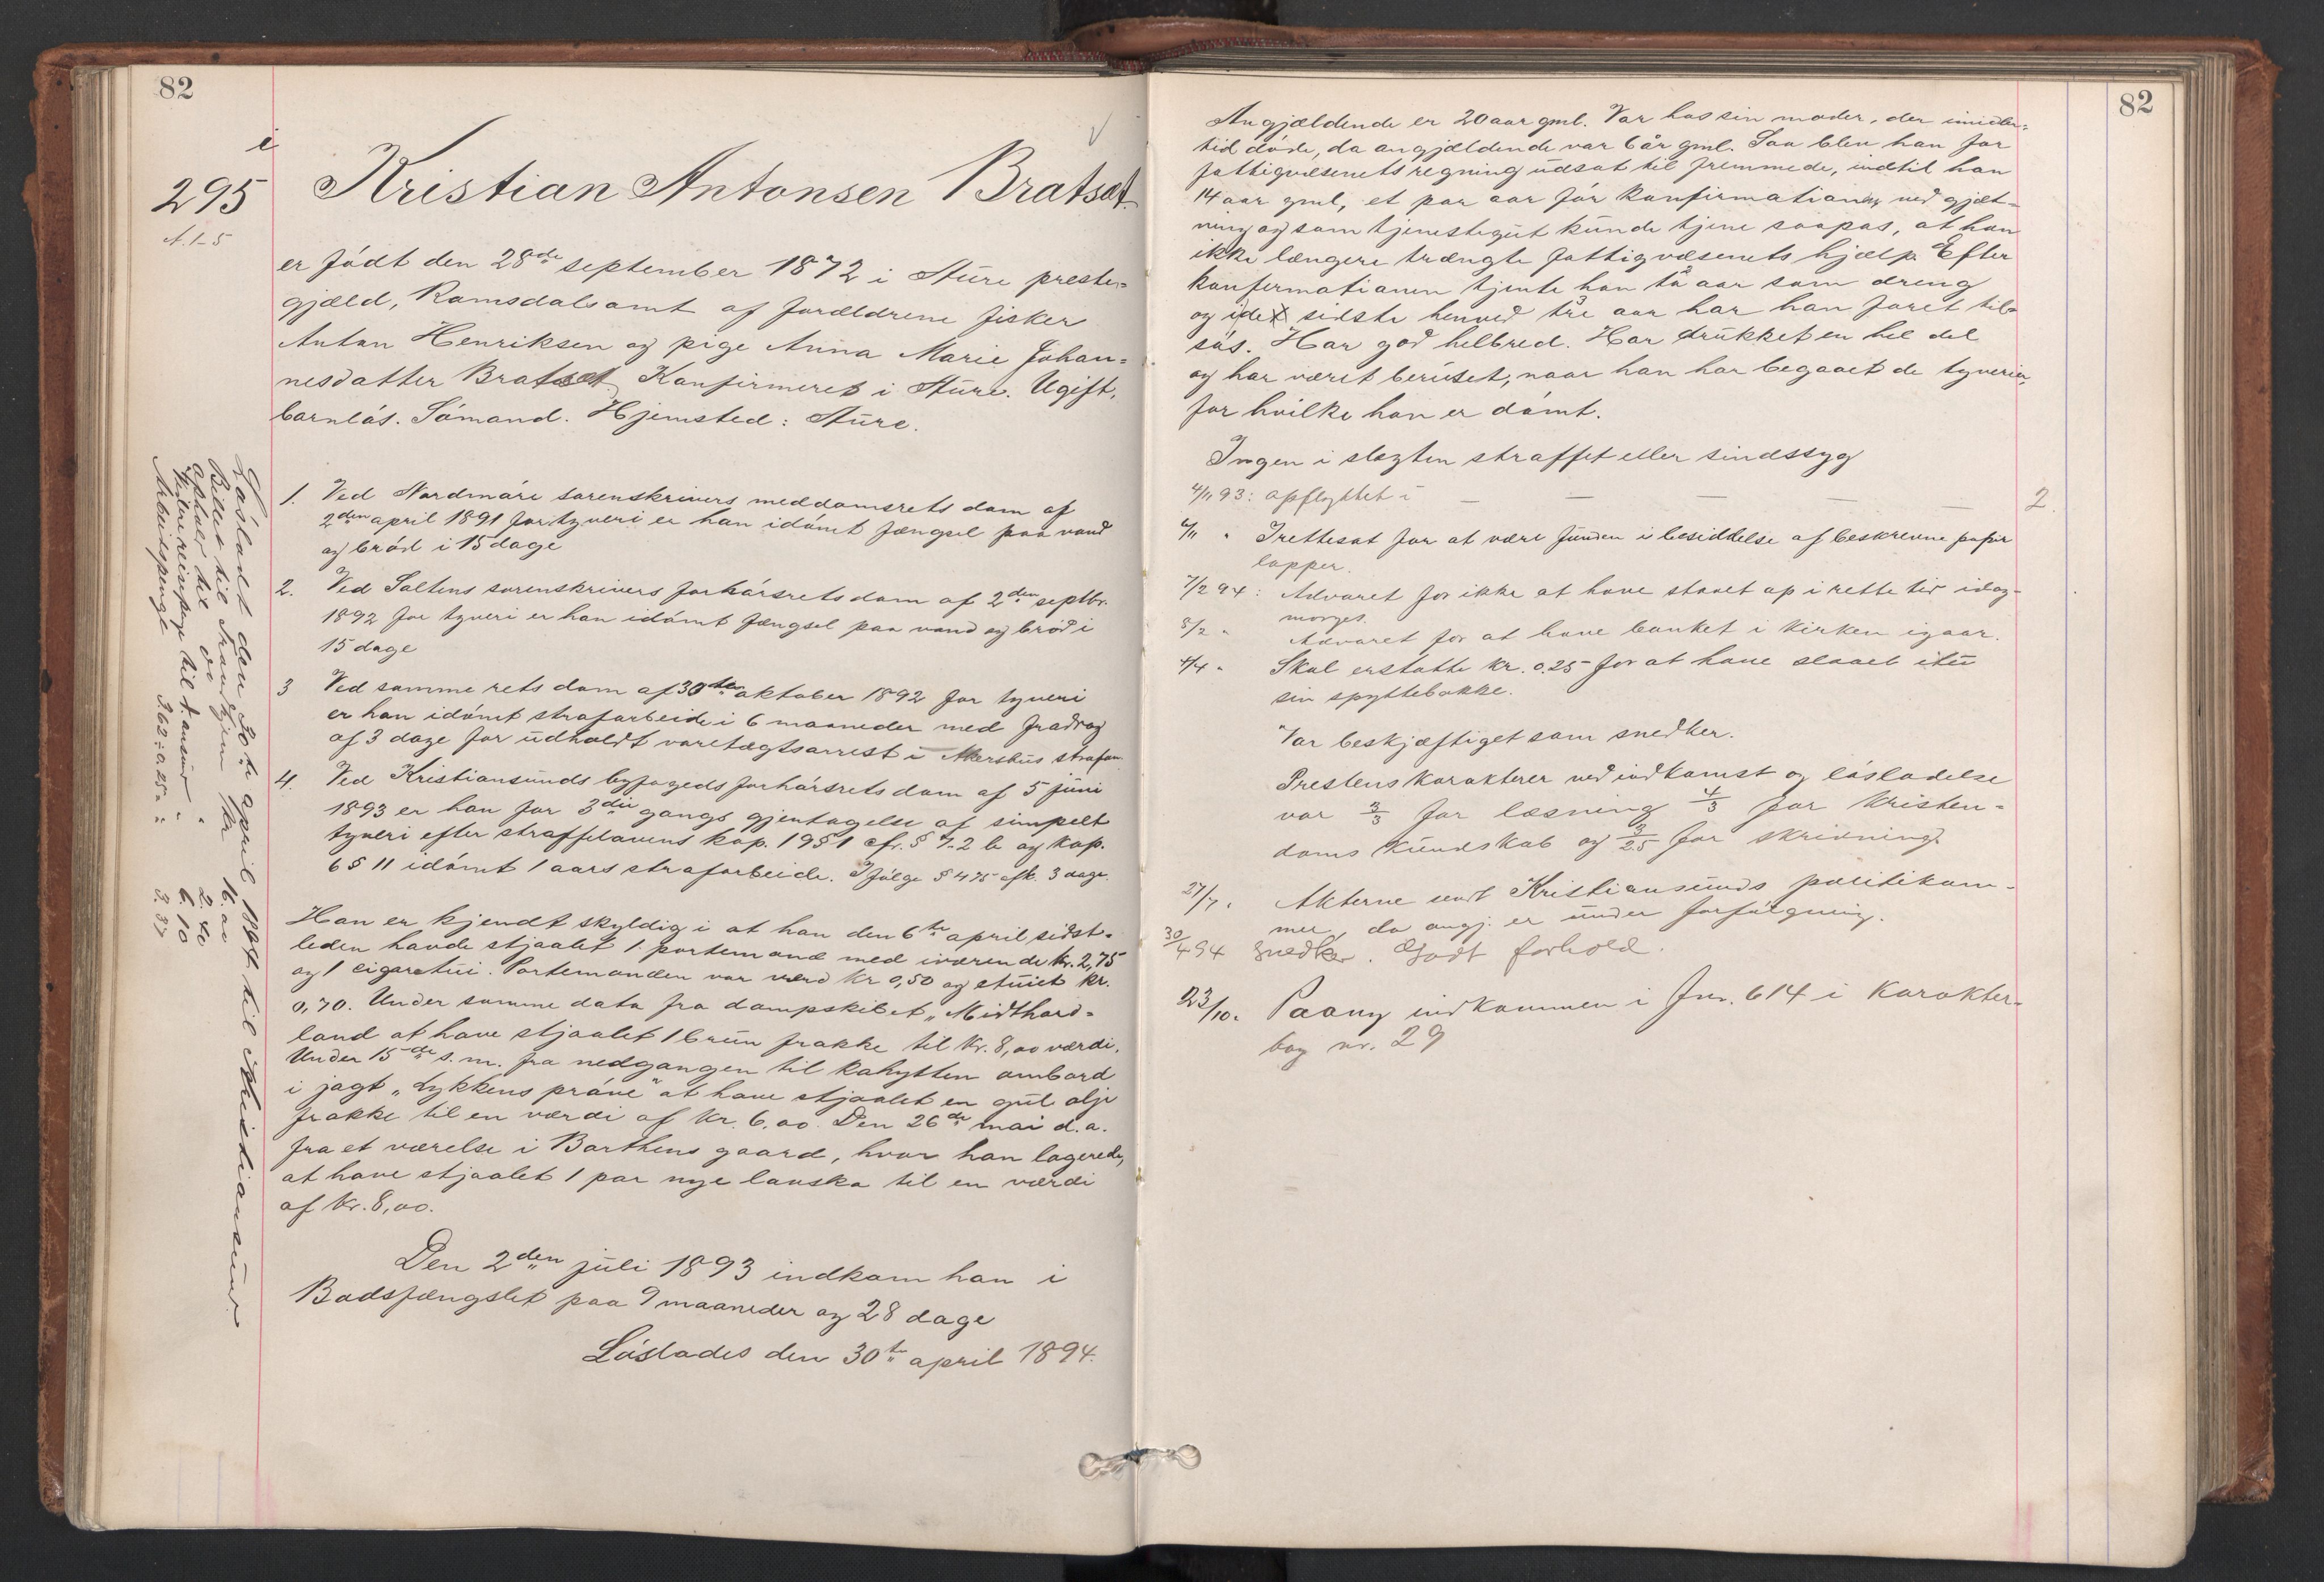 82
i
295
A. 1-5
Kristian Antonsen Bratset
er født den 28de september 1872 i Aure preste-
gjæld, Romsdals amt af forældrene fisker
Anton Henriksen og pige Anna Marie Johan-
nesdatter Bratset. Konfirmeret i Aure. Ugift,
barnløs. Sømand. Hjemsted: Aure.
1. Ved Nordmøre sorenskrivers meddomsrets dom af
2den april 1891 for tyveri er han idømt fængsel paa vand
og brød i 15 dage
2. Ved Saltens sorenskrivers forhørsrets dom af 2den septbr.
1892 for tyveri er han idømt fængsel paa vand og brød i
15 dage
3 Ved samme rets dom af 30te oktober 1892 for tyveri
er han idømt strafarbeide i 6 maaneder med fradrag
af 3 dage for udholdt varetægtsarrest i Akershus strafan.
4. Ved Kristiansunds byfogeds forhørsrets dom af 5 juni
1893 er han for 3die gangs gjentagelse af simpelt
tyveri efter straffelovens kap. 19 § 1 cfr. § 7-2 b og kap.
6 § 11 idømt 1 aars strafarbeide. Ifølge § 475 afk. 3 dage.
Han er kjendt skyldig i at han den 6te april sidst-
leden havde stjaalet 1 portemonæ med iværende kr. 2,75
og 1 cigaretui. Portemonæen var værd kr 0,50 og etuiet kr.
0,70. Under samme dato fra dampskibet "Midthord-
land at have stjaalet 1 brun frakke til kr. 8,00 værdi.
Under 15de s. m. fra nedgangen til kahytten ombord
i jagt "Lykkens prøve" at have stjaalet en gul olje
frakke til en værdi af kr. 6,00. Den 26de mai d. a.
fra et værelse i Barthens gaard, hvor han logerede,
at have stjaalet 1 par nye lauska til en værdi
af kr. 8,00.
Den 2den juli 1893 indkom han i
Bodsfængslet paa 9 maaneder og 28 dage
Løslades den 30te april 1894.
Løsladt den 30te april 1894 til Kristiansund
Billet til Trondhjem kr 16.00
ophold til do 2.40
Videre reisepenge til Kr.ansund " 6.10
Arbeidspenge 3.62 ÷ 0.25 = " 3.37
82
Angjældende er 20 aar gml. Var hos sin moder, der imidler-
tid døde, da angjældende var 6 år gml. Saa blev han for
fattigvæsenets regning udsat til fremmede, indtil han
14 aar gml, et par aar før konfirmationen ved gjæt-
ning og som tjenestegut kunde tjene saapas, at han
ikke længere trængte fattigvæsenets hjælp. Efter
konfirmationen tjente han to aar som dreng
og i de sidste henved tre aar har han faret til-
søs. Har god helbred. Har drukket en hel del
og har været beruset, naar han har begaaet de tyverier,
for hvilke han er dømt.
Ingen i slægten straffet eller sindssyg
4/11 93: opflyttet i — — — — — 2.
6/11 " Irettesat for at være funden i besiddelse af beskrevne papir
lapper.
7/2 94: Advaret for ikke at have staaet op i rette tid idag-
morges.
8/2 " Advaret for at have banket i kirken igaar.
4/4 " Skal erstatte kr. 0.25 for at have slaaet itu
sin spyttebakke.
Var beskjæftiget som snedker.
Prestens karakterer ved indkomst og løsladelse
var 3/3 for læsning 4/3 for kristen-
doms kundskab og 3/2.5 for skrivning.
27/7 " Akterne sendt Kristiansunds politikam-
mer, da angj. er under forfølgning.
30/4 94 Snedker. Godt forhold.
23/10 " Paany indkommen i Jnr. 614 i karakter-
bog nr. 29